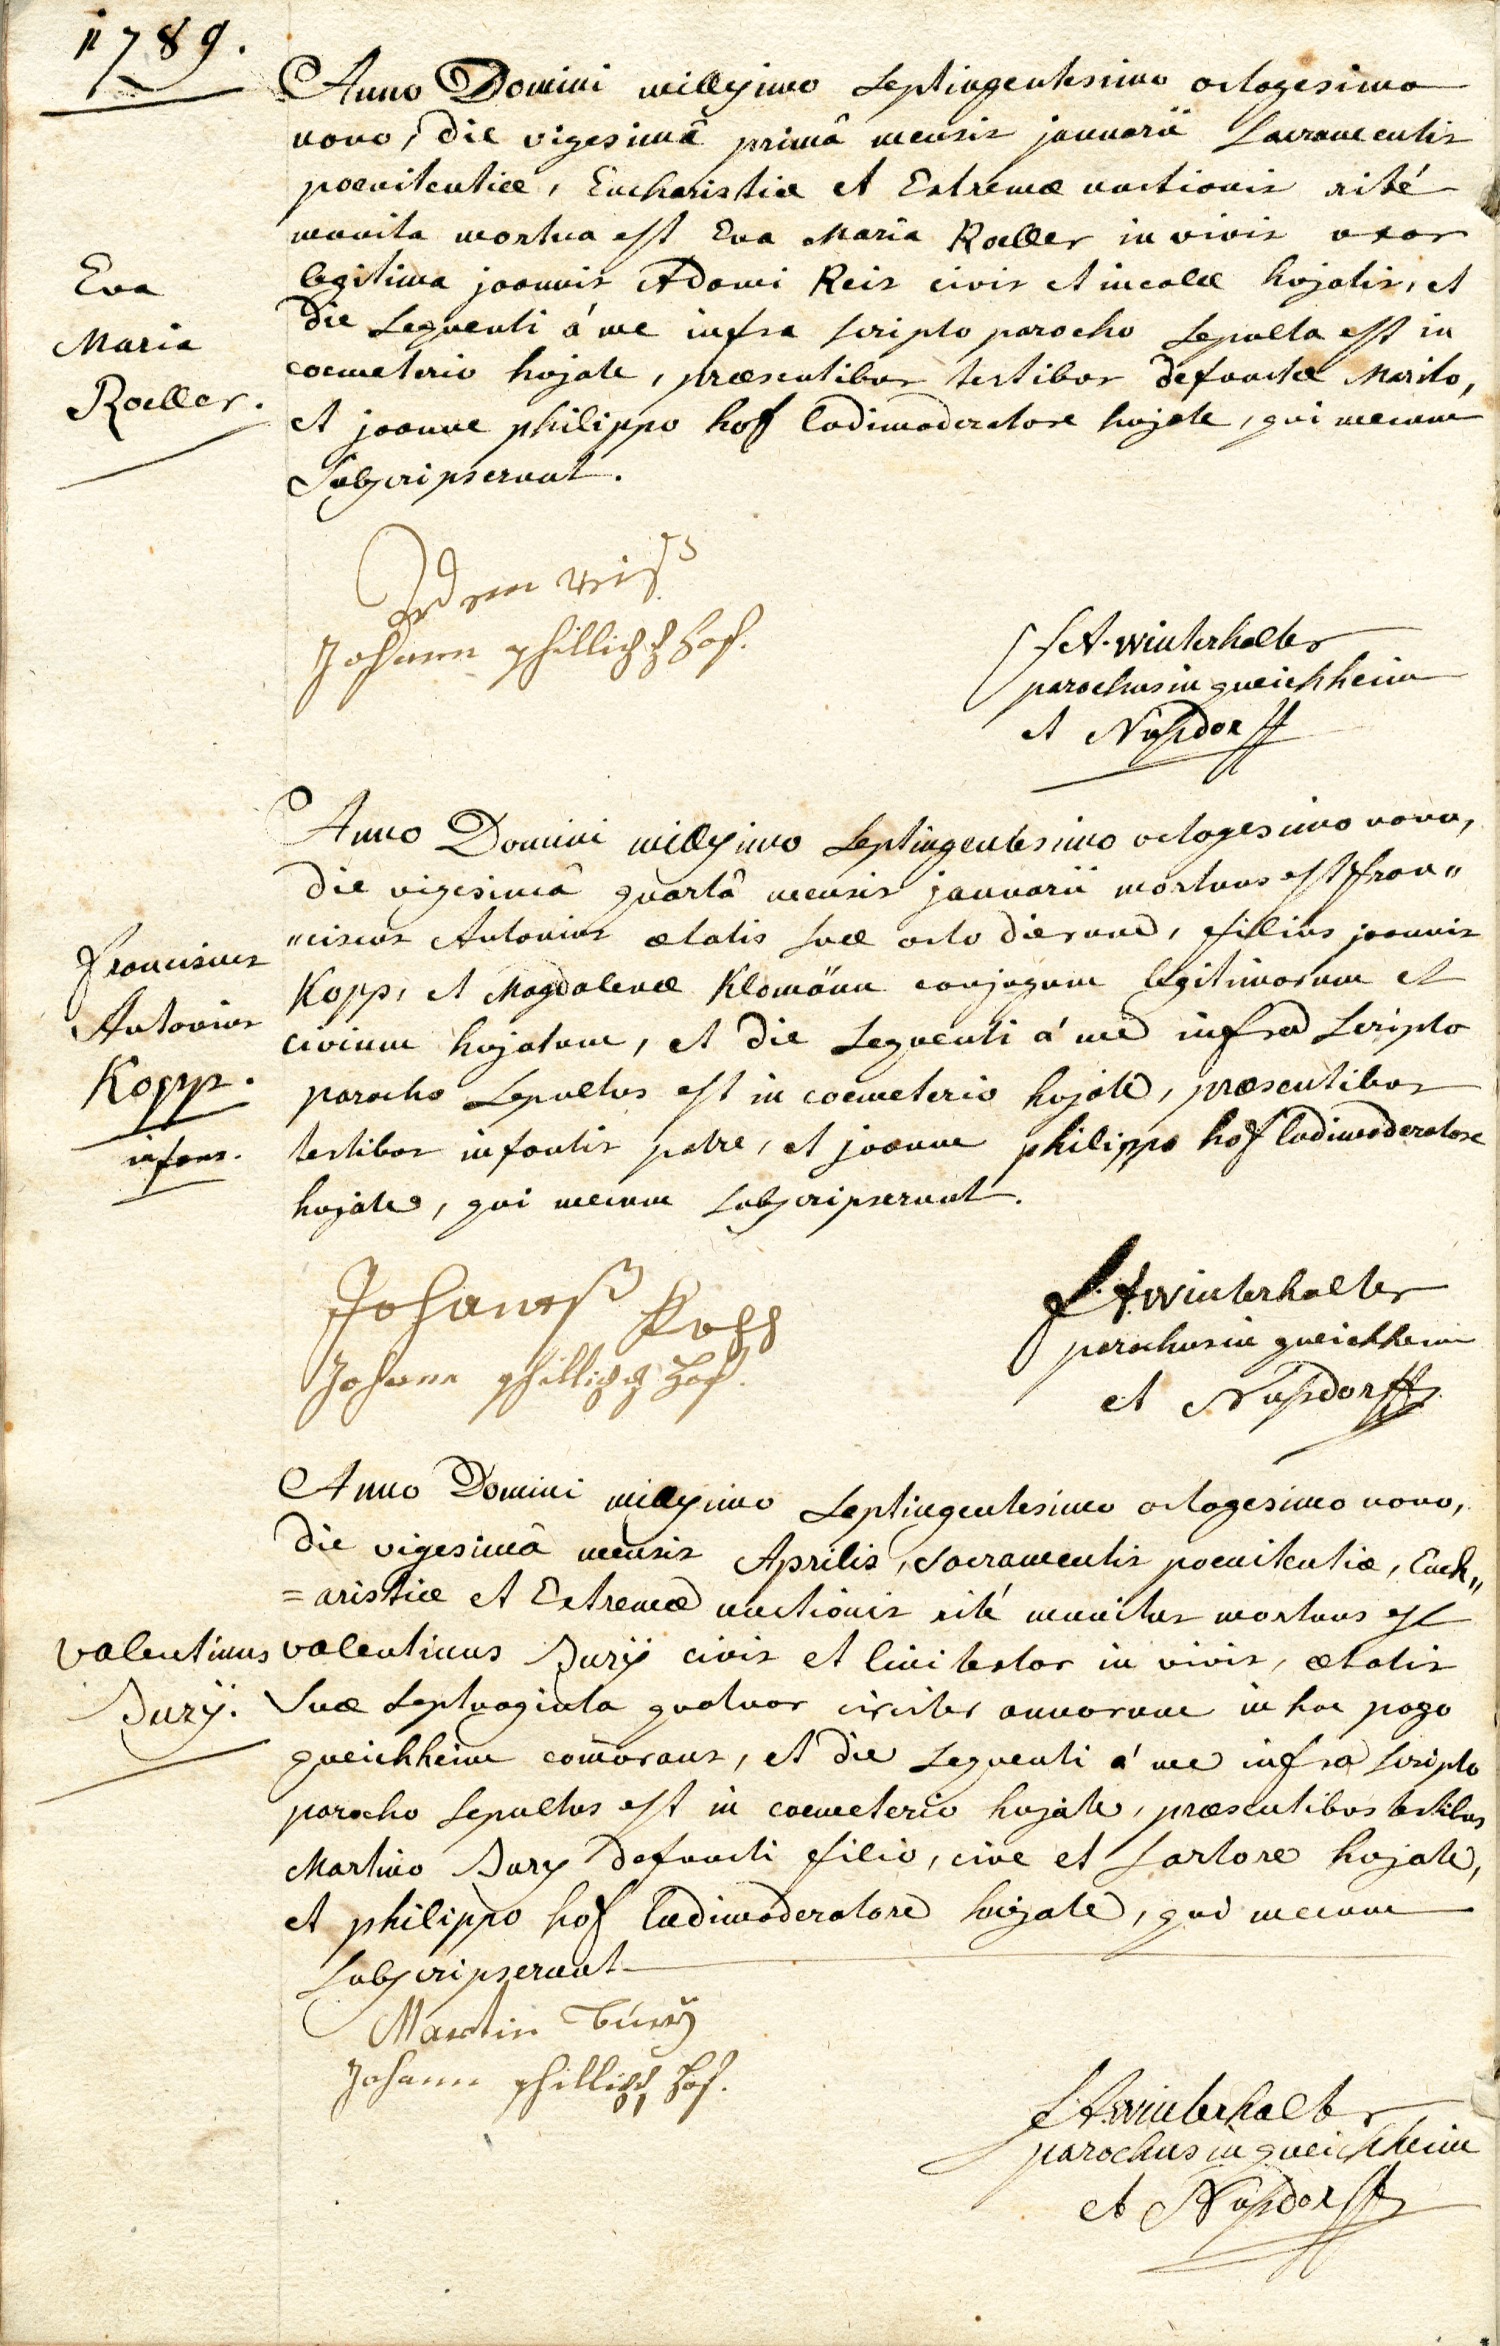 1789.
Anno Domini millesimo Septingentesimo octogesimo
novo, die vigesimâ primâ mensis januarii Sacramentis
poenitentiæ, Eucharistiæ et Extremæ unctionis rité
munita mortua est Eva Maria Roeller in vivis uxor
legitima joannis Adami Reis civis et incolæ hujatis, et
die Sequenti á me infra scripto parocho Sepulta est in
coemeterio hujate, præsentibus testibus defunctæ Marito,
et joanne philippo hof ludimoderatore hujate, qui mecum
Subscripserunt.
Eva
Maria
Roeller.
Johann phillipp Hof.
f A. Winterhalter
parochus in queichheim
et Nusdorff
Anno Domini millesimo Septingentesimo octogesimo novo,
die vigesimâ quartâ mensis januarii mortuus est fran"
"ciscus Antonius ætatis suæ octo dierum, filius joannis
Kopp, et Magdalenæ Klomänn conjugum legitimorum et
civium hujatum, et die Sequenti á me infra Scripto
parocho Sepultus est in coemeterio hujate, præsentibus
testibus infantis patre, et joanne philippo hof ludimoderatore
hujate, qui mecum subscripserunt.
franciscus
Antonius
Kopp.
infans.
Johaness Kopp
Johann phillipp Hof.
f. A Winterhalter
parochus in queichheim
et Nusdorff
Anno Domini millesimo Septingentesimo octogesimo novo,
die vigesimâ mensis Aprilis, Sacramentis poenitentiæ, Euch"
= aristiæ et Extremæ unctionis rité munitus mortuus est
valentinus Burÿ civis et linitextor in vivis, ætatis
Suæ Septuaginta quatuor circiter annorum in hoc pago
queichheim com̄orans, et die Sequenti á me infra scripto
parocho Sepultus est in coemeterio hujate, præsentibus testibus
Martino Bury defuncti filio, cive et Sartore hujate,
et philippo hof ludimoderatore hujate, qui mecum
Subscripserunt
valentinus
Burÿ.
Martin Burÿ
Johann phillipp Hof.
f A. Winterhalter
parochus in queichheim
et Nusdorff